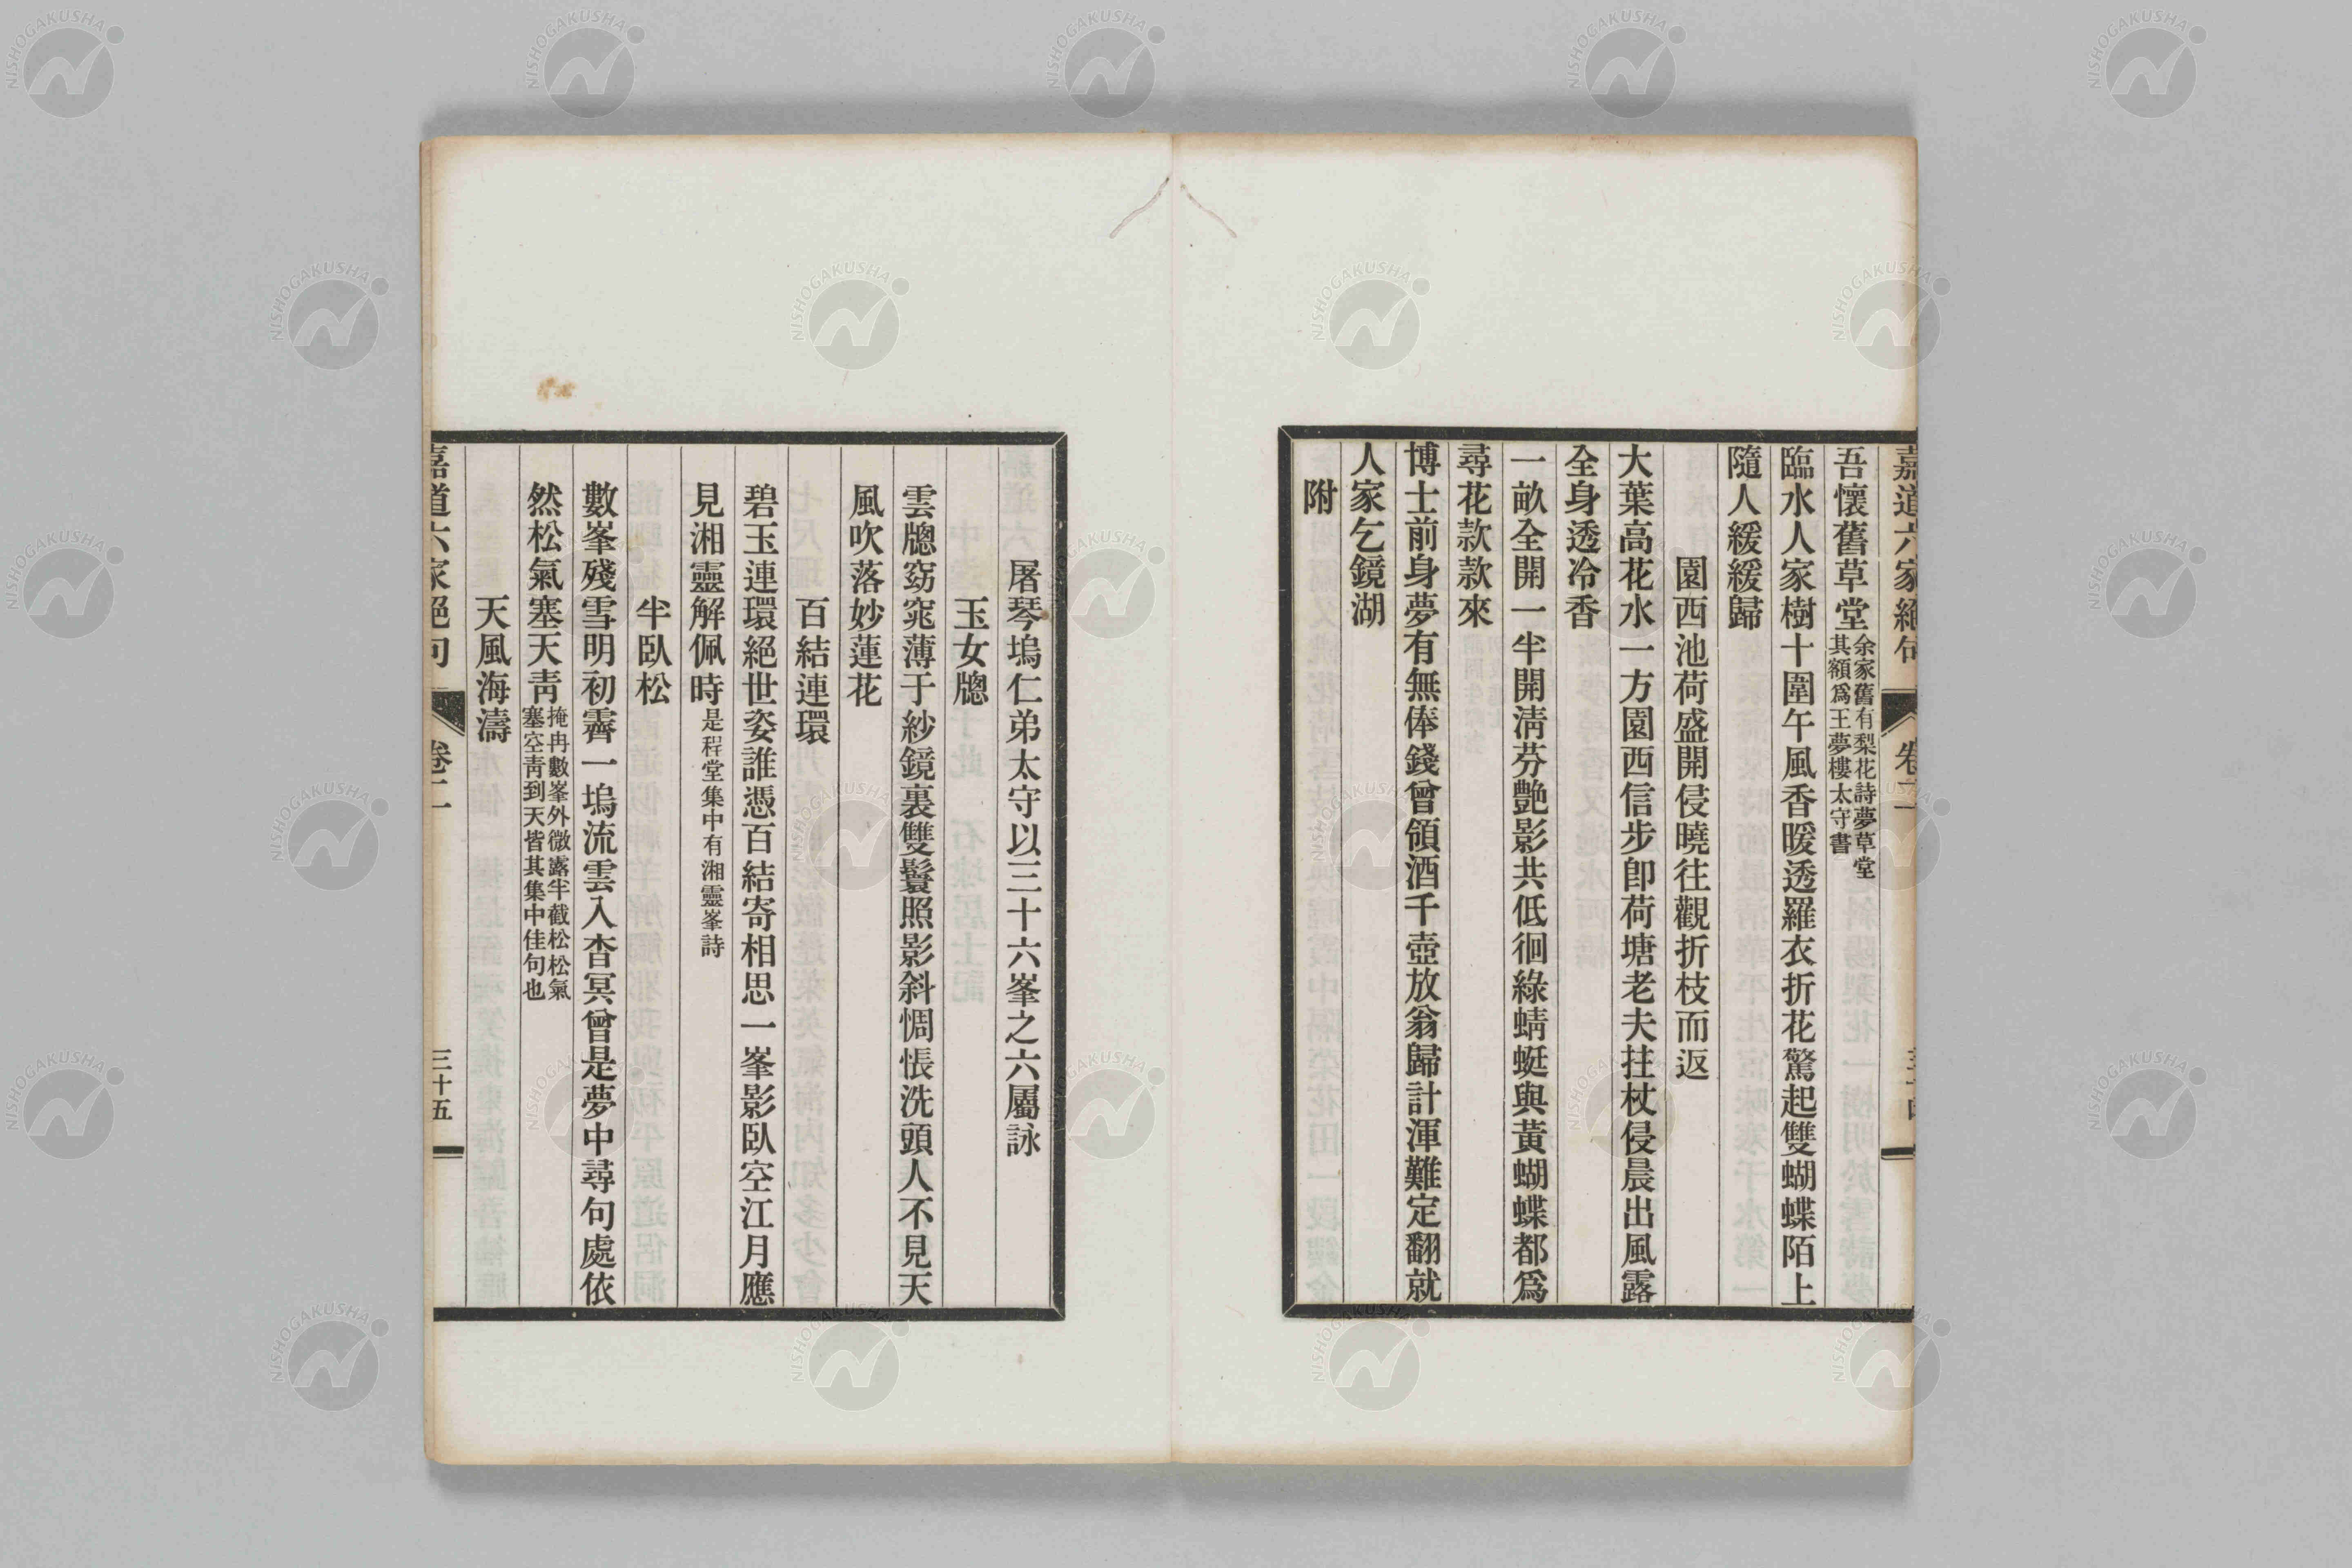 嘉道六家絕句 卷二
吾懷舊草堂余家舊有梨花詩夢草堂
其額爲王夢樓太守書
臨水人家樹十圍午風香暖透羅衣折花驚起雙蝴蝶陌上
隨人緩緩歸
園西池荷盛開侵曉往觀折枝而返
大葉高花水一方園西信步卽荷塘老夫拄杖侵晨出風露
全身透冷香
一畝全開一半開淸芬艷影共低徊綠蜻蜓與黃蝴蝶都爲
尋花款款來
博士前身夢有無俸錢曾領酒千壺放翁歸計渾難定翻就
人家乞鏡湖
附
屠琴塢仁弟太守以三十六峯之六屬詠
玉女牕
雲牕窈窕薄于紗鏡裏雙鬟照影斜惆悵洗頭人不見天
風吹落妙蓮花
百結連環
碧玉連環絕世姿誰憑百結寄相思一峯影臥空江月應
見湘靈解佩時是程堂集中有湘靈峯詩
半臥松
數峯殘雪明初霽一塢流雲入杳冥曾是夢中尋句處依
然松氣塞天靑掩冉數峯外微露半截松松氣
塞空靑到天皆其集中佳句也
天風海濤
嘉道六家絕句 卷二 三十五
NISHOGAKUSHA